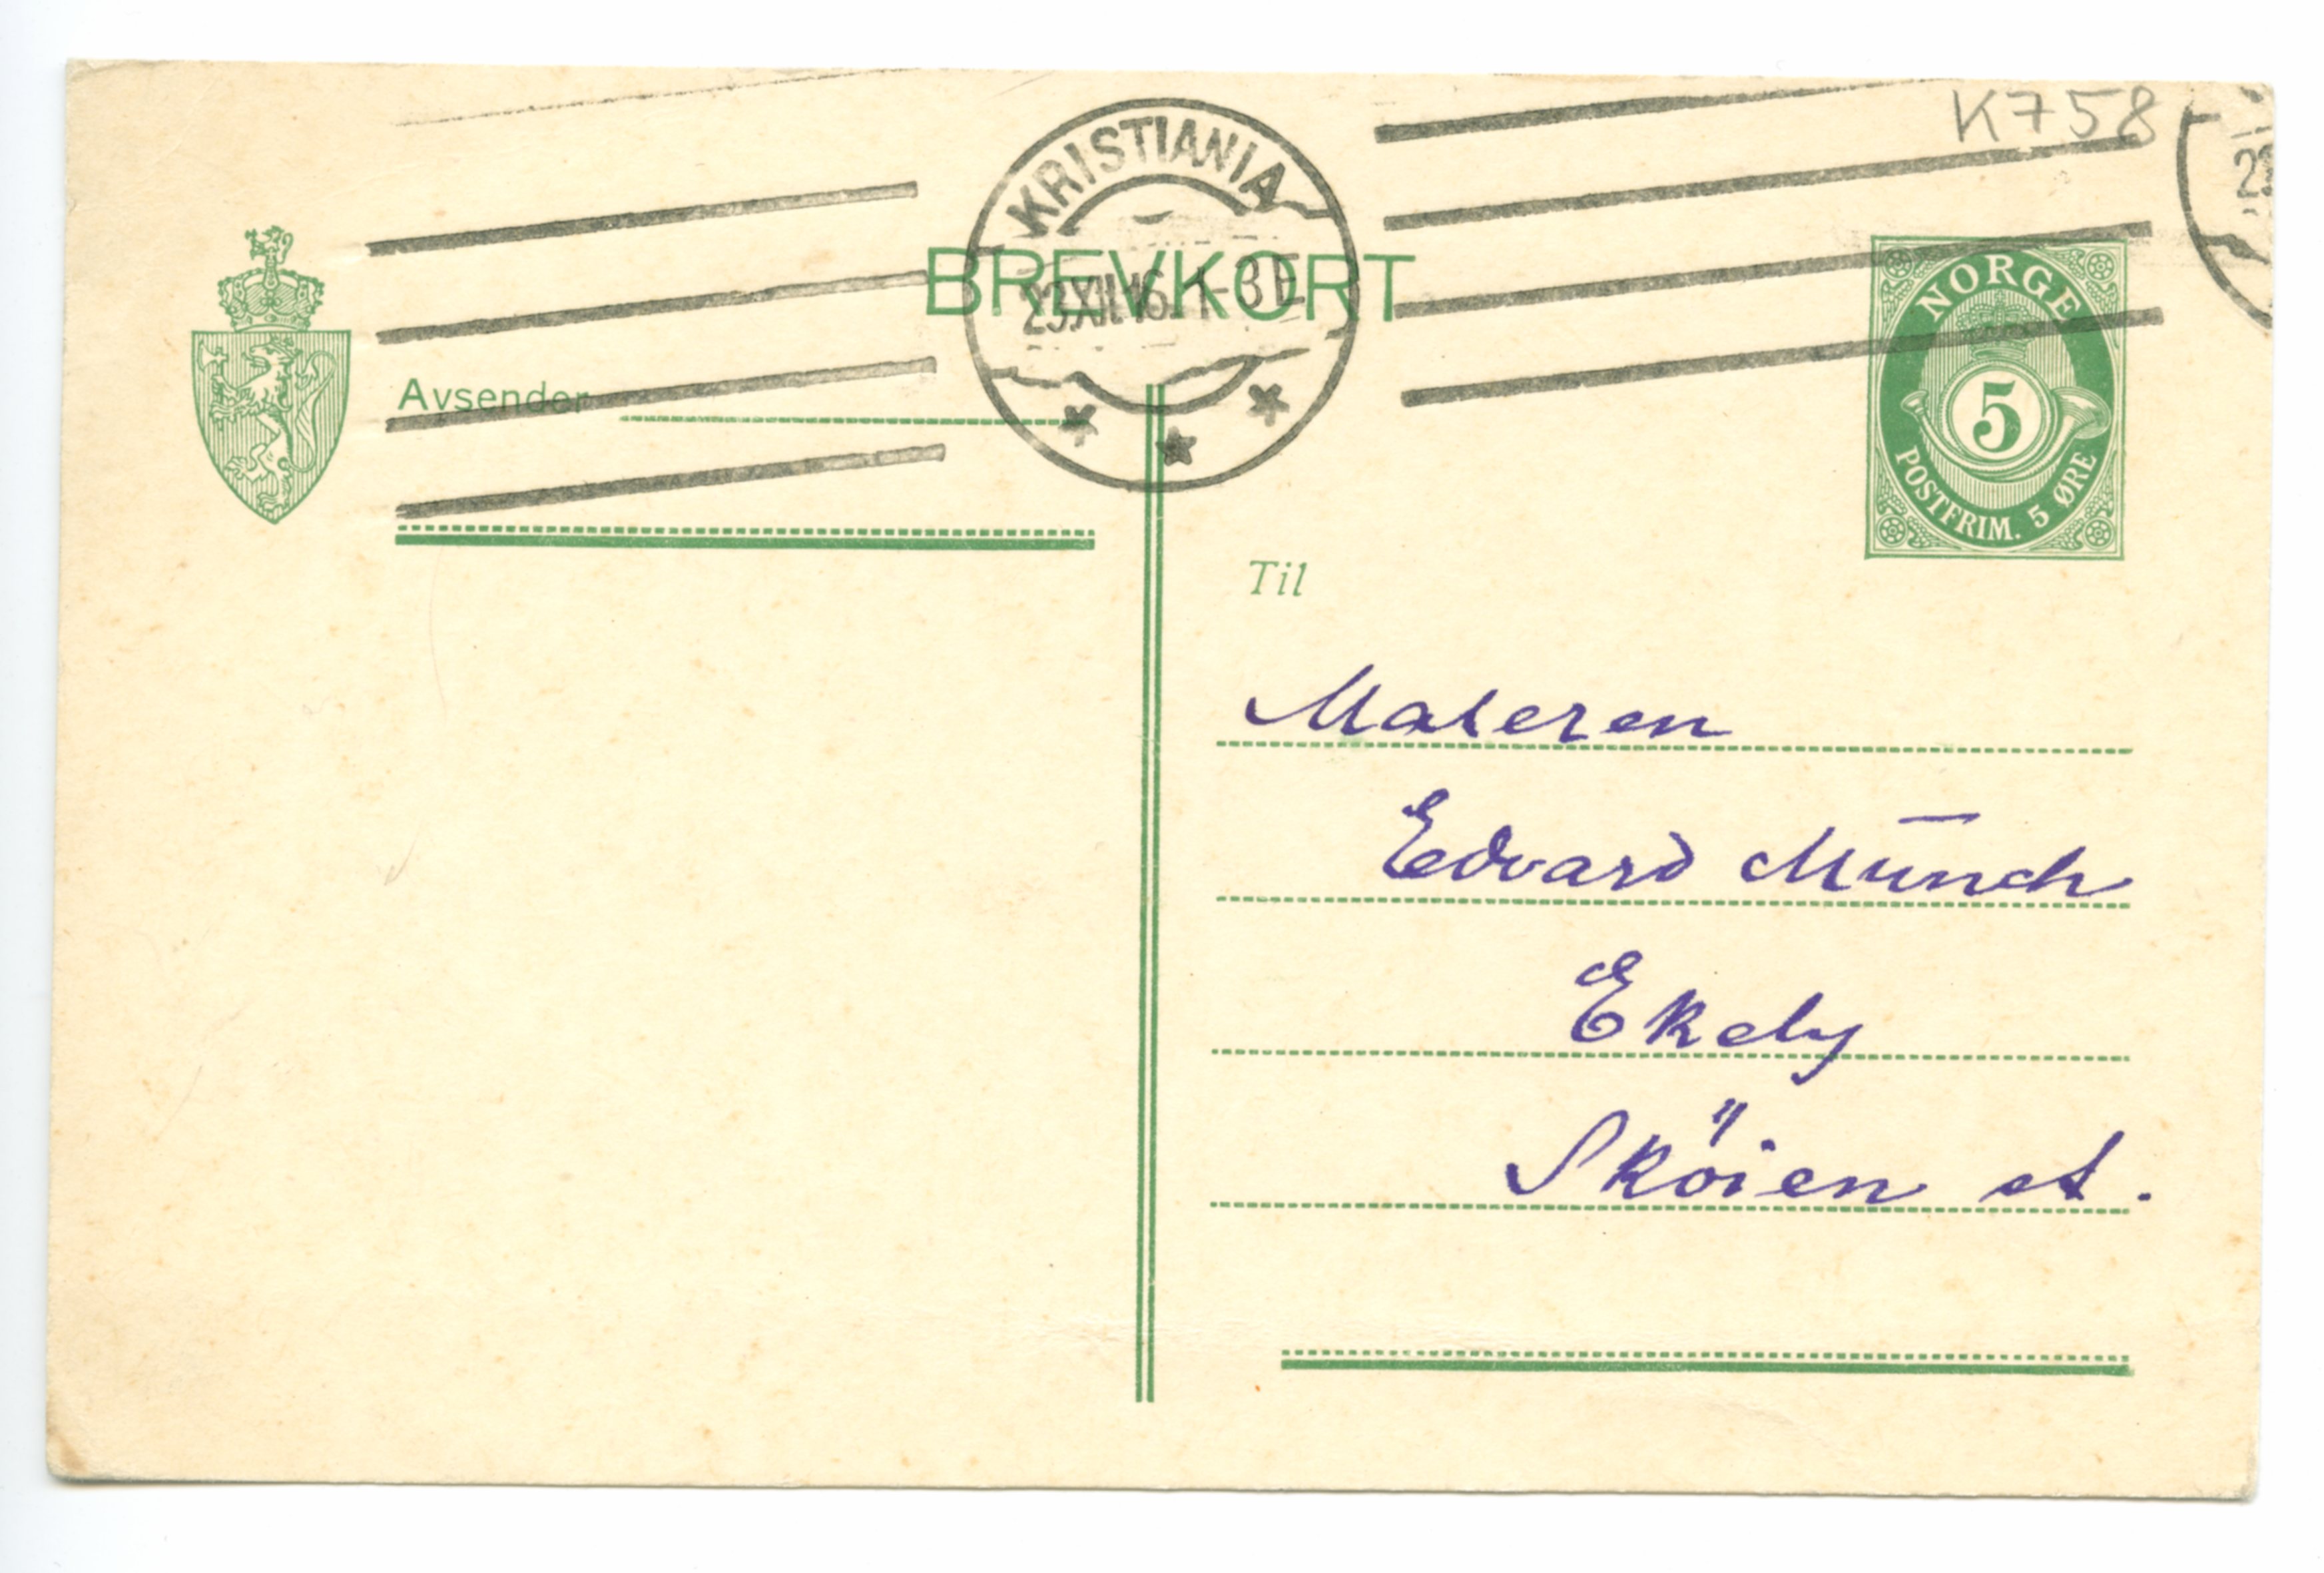 K758
KRISTIANIA
BREVKORT
23.XII.16. 1-3 E
NORGE
5
POSTFRIM. 5 ØRE
Avsender
Til
Maleren
Edvard Munch
Ekely
Sköien st.